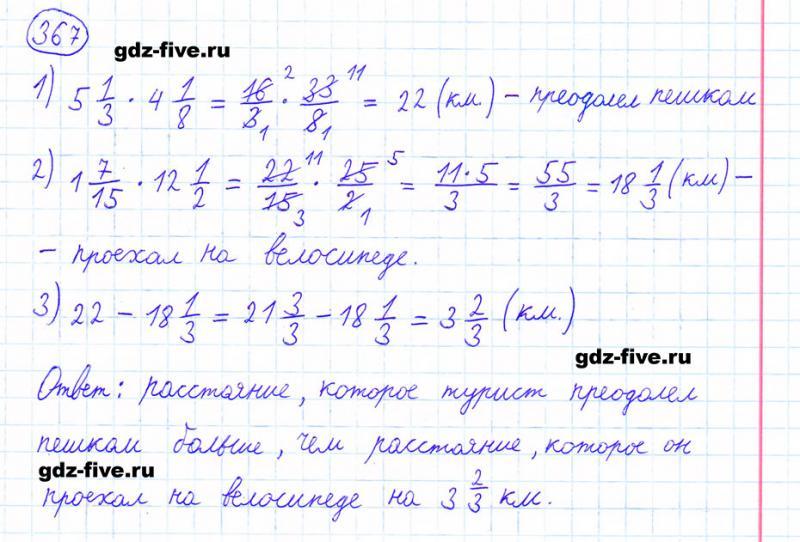 367
gdz-five.ru
1) 5 1/3 · 4 1/8 = 16/3 · 33/8 = 22 (км.) – преодолел пешком
2) 1 7/15 · 12 1/2 = 22/15 · 25/2 = 11·5/3 = 55/3 = 18 1/3 (км) –
– проехал на велосипеде.
3) 22 – 18 1/3 = 21 3/3 – 18 1/3 = 3 2/3 (км.)
gdz-five.ru
Ответ: расстояние, которое турист преодолел
пешком больше, чем расстояние, которое он
gdz-five.ru
проехал на велосипеде на 3 2/3 км.